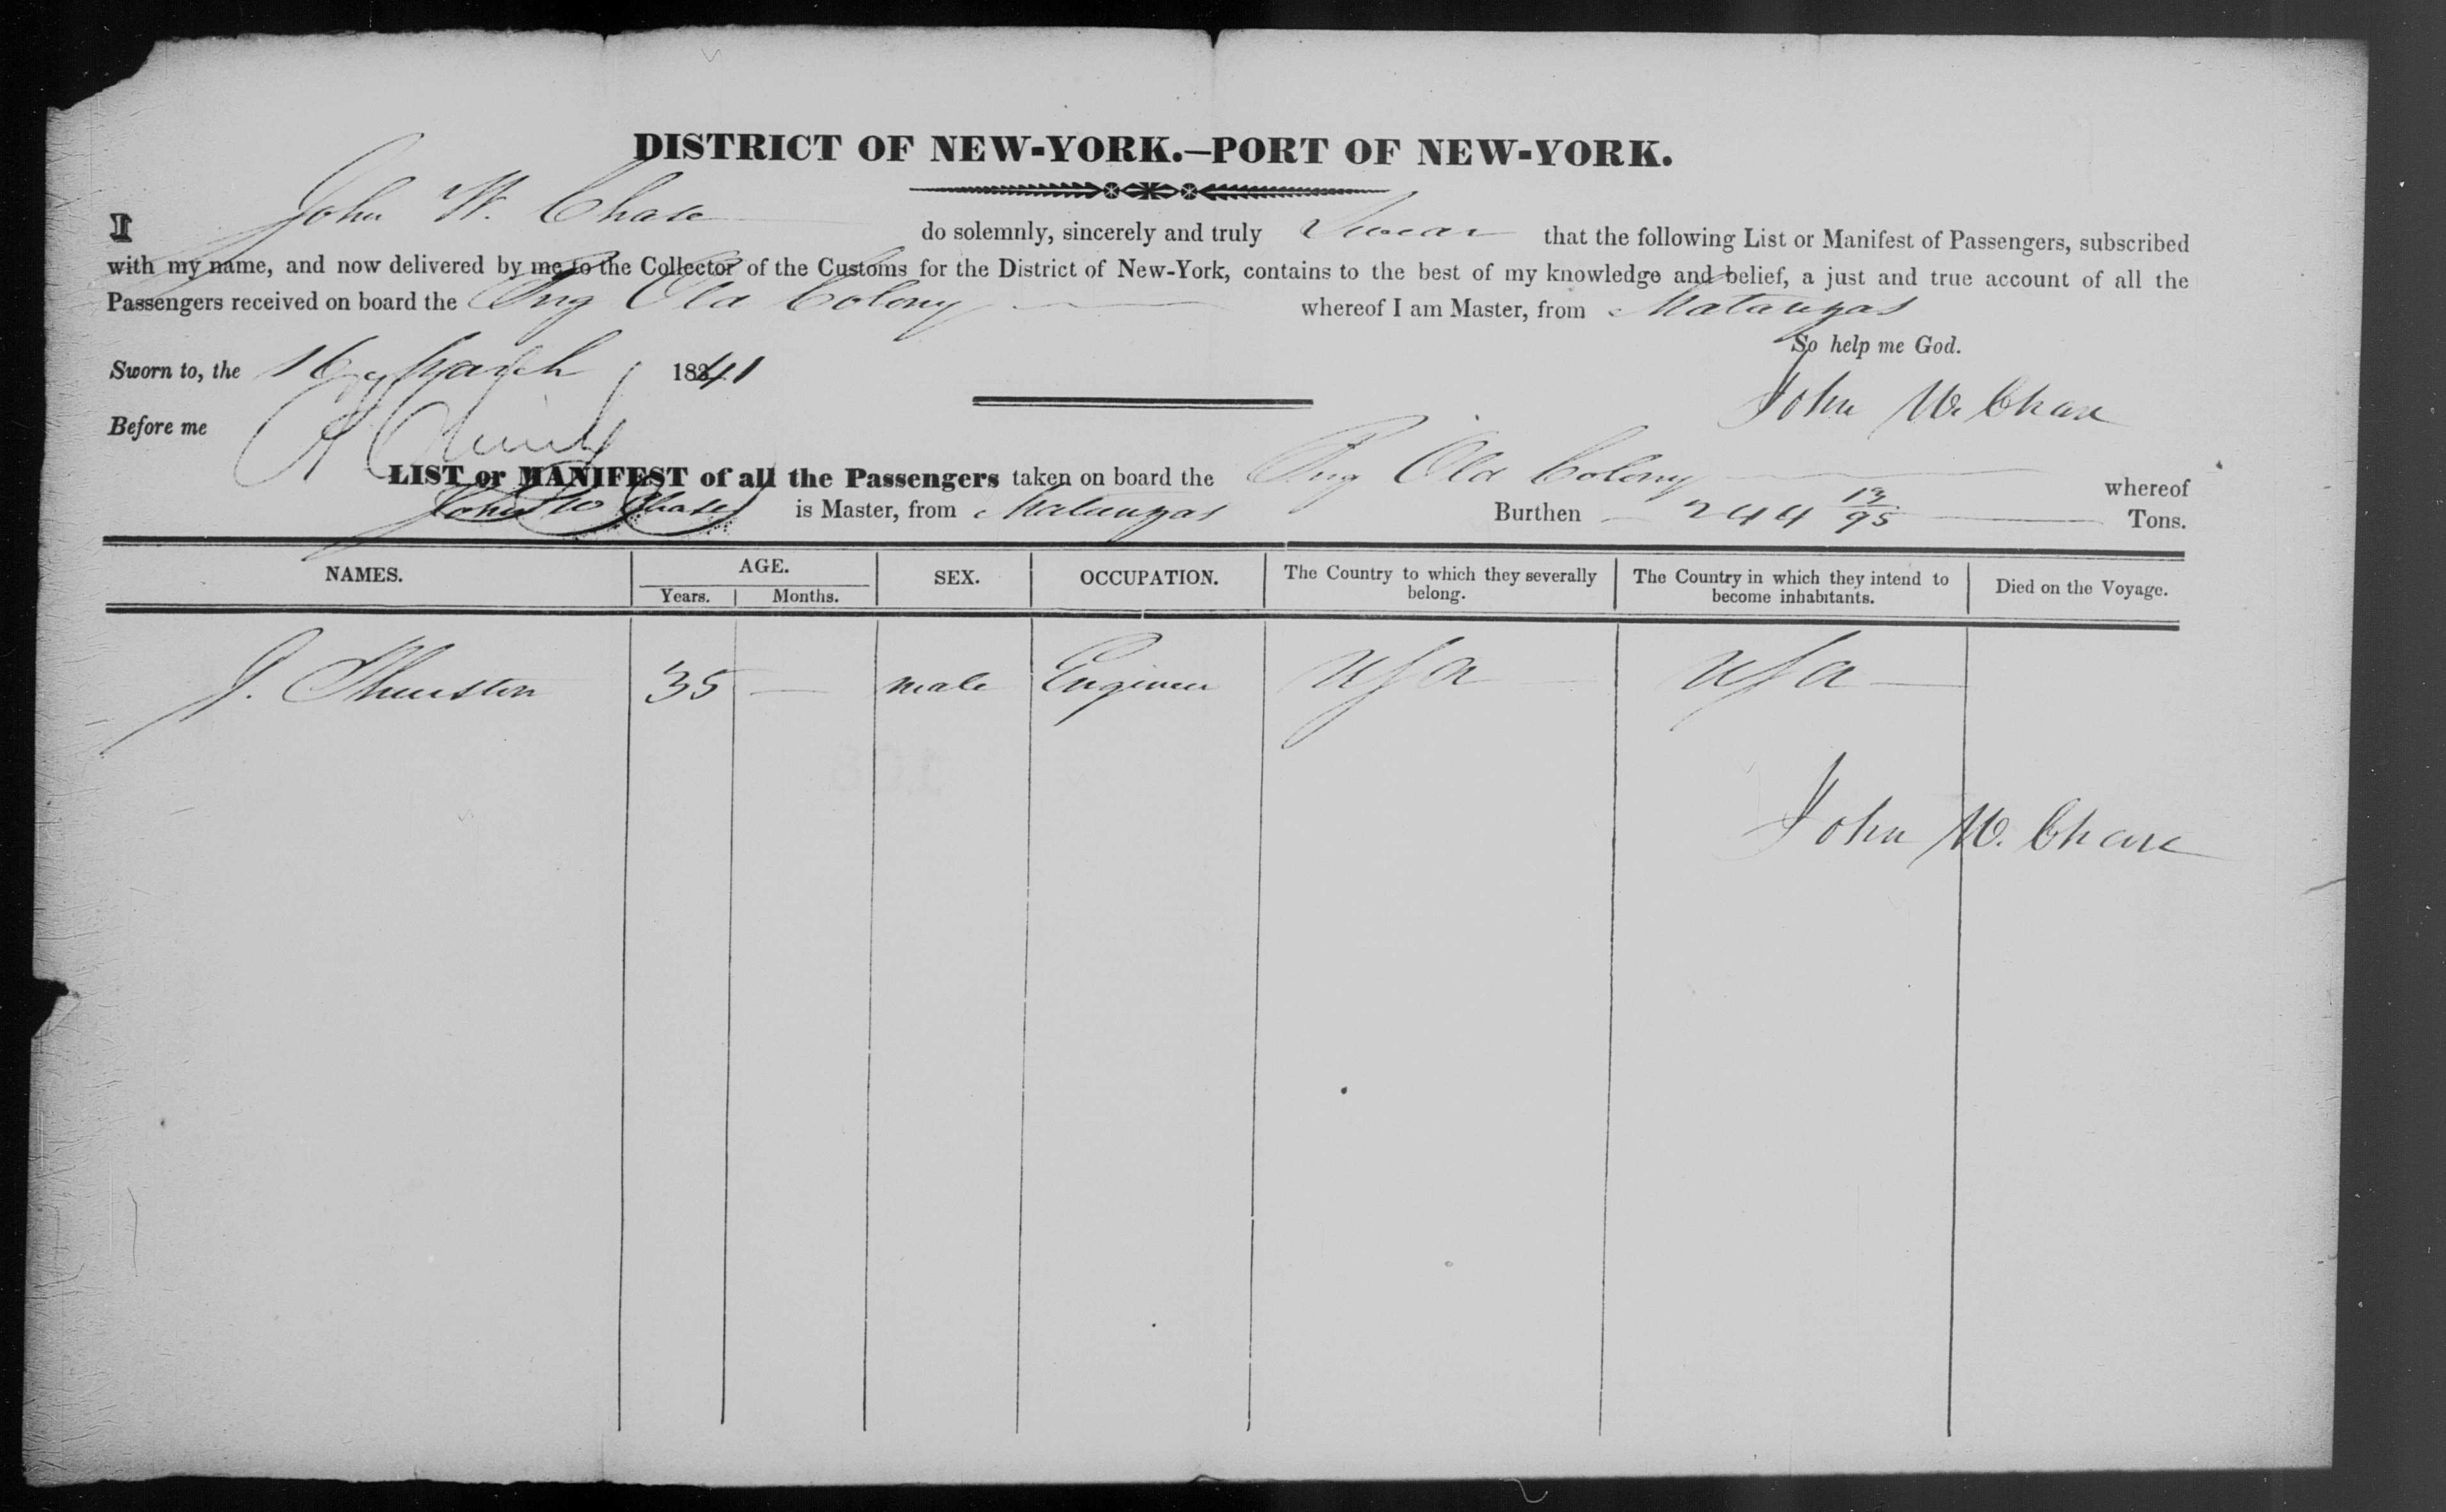 DISTRICT OF NEW-YORK.—PORT OF NEW-YORK.
I John W. Chase do solemnly, sincerely and truly Swear that the following List or Manifest of Passengers, subscribed
with my name, and now delivered by me to the Collector of the Customs for the District of New-York, contains to the best of my knowledge and belief, a just and true account of all the
Passengers received on board the Brig Old Colony whereof I am Master, from Matanzas
So help me God.
Sworn to, the 16 March 1841
John W. Chase
Before me
LIST or MANIFEST of all the Passengers taken on board the Brig Old Colony whereof
John W Chase is Master, from Matanzas Burthen 244 13/95 Tons.
NAMES. AGE. Years. Months. SEX. OCCUPATION. The Country to which they severally belong. The Country in which they intend to become inhabitants. Died on the Voyage.
J. Thurston 35 — male Engineer USA USA —
John W. Chase